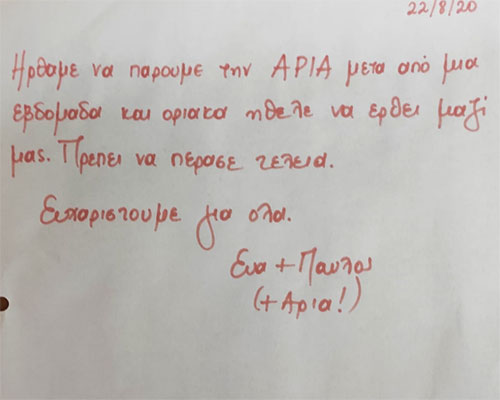 22/8/20
Ηρθαμε να παρουμε την ΑΡΙΑ μετα από μια
εβδομαδα και οριακα ηθελε να ερθει μαζί
μας. Πρεπει να πέρασε τελεια.
Ευχαριστουμε για ολα.
Ευα + Παυλος
(+ Αρια!)